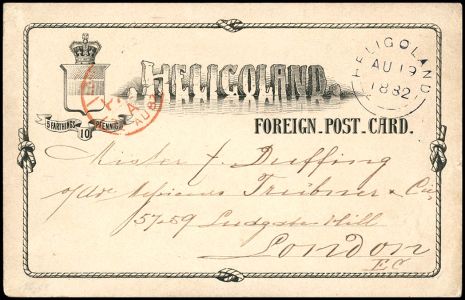 HELIGOLAND.
HELIGOLAND
AU 19
1882
A
AU
5 FARTHINGS 10 PFENNIG
FOREIGN POST CARD.
Mister J. Duffing
Trübner & Co
57&59 Ludgate Hill
London
EC